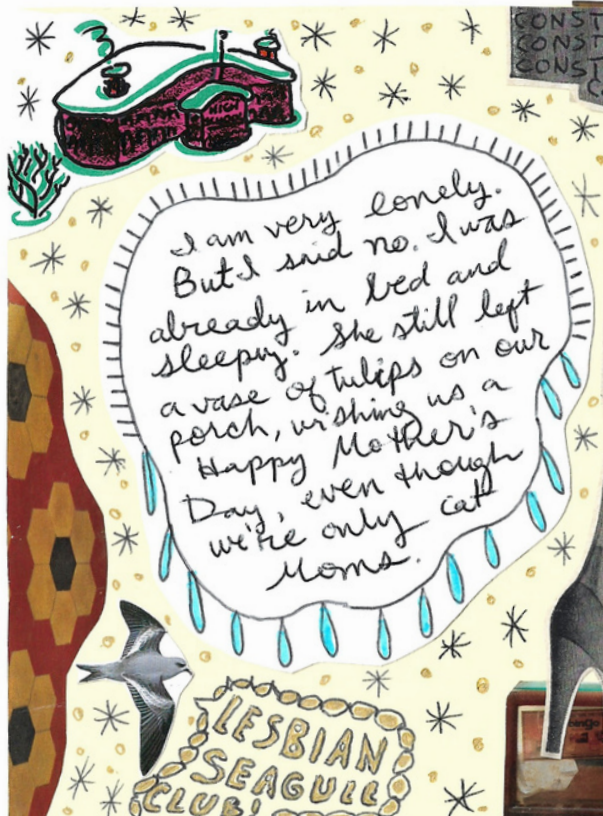 CONST
CONST
CONST
C
I am very lonely.
But I said no. I was
already in bed and
sleepy. She still left
a vase of tulips on our
porch, wishing us a
Happy Mother's
Day, even though
we're only cat
Moms.
LESBIAN
SEAGULL
CLUB!